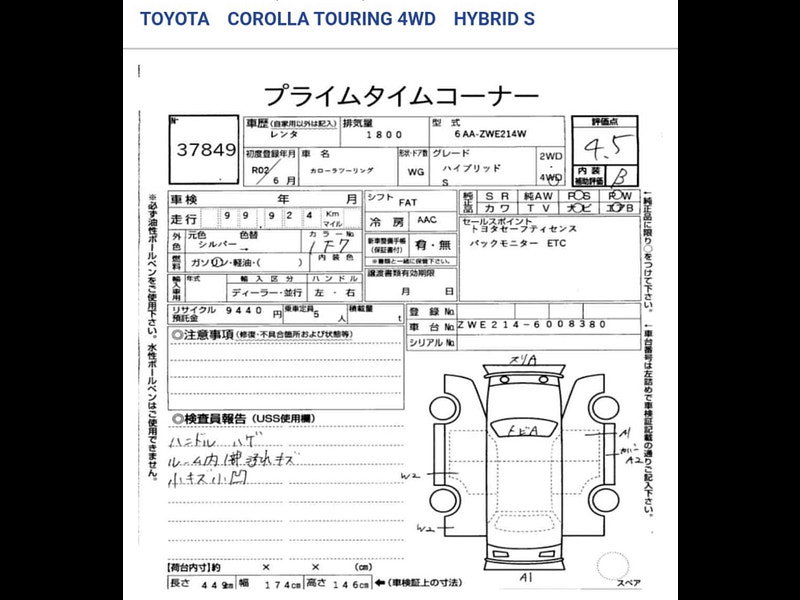 TOYOTA COROLLA TOURING 4WD HYBRID S
プライムタイムコーナー
No.
37849
車歴 (自家用以外は記入)
レンタ
排気量
1800
型式
6AA-ZWE214W
評価点
4.5
初度登録年月
R02/6月
車名
カローラツーリング
形状・ドア数
WG
グレード
ハイブリッド
S
2WD
・
4WD
内装
補助評価
B
車検 年 月
シフト FAT
純正品
SR 純AW PS PW
カワ TV ナビ エアB
走行 99924 Km
マイル
冷房 AAC
セールスポイント
トヨタセーフティセンス
バックモニター ETC
外色
元色 色替
シルバー →
カラーNo.
1F7
新車整備手帳
(保証書付)
有・無
※書類と一緒に保管下さい。
燃料
ガソリン・軽油・( )
内装色
譲渡書類有効期限
月 日
輸入車用
年式
輸入区分
ハンドル
ディーラー・並行
左・右
リサイクル
預託金
9440円
乗車定員
5人
積載量
t
登録No.
車台No. ZWE214-6008380
シリアルNo.
◎注意事項(修復・不具合箇所および状態等)
◎検査員報告(USS使用欄)
ハンドル ハゲ
小キズ小凹
スリA
トビA
A1
A2
W2
W2
A1
スペア
【荷台内寸】約 × × (cm)
長さ 449cm 幅 174cm 高さ 146cm ←(車検証上の寸法)
※必ず油性ボールペンをご使用下さい。水性ボールペンはご使用できません。
←純正品に限り○をつけて下さい。
←車台番号は左詰めで車検証記載の通りご記入下さい。